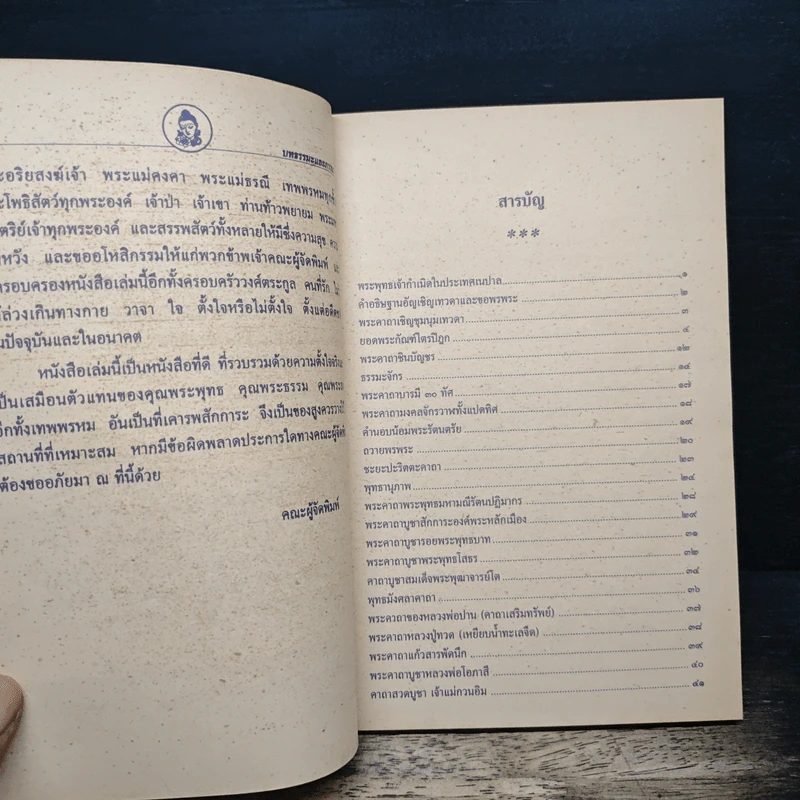 บทธรรมะและการ
ะอริยสงฆ์เจ้า พระแม่คงคา พระแม่ธรณี เทพพรหมทุกชั้น
ะโพธิสัตว์ทุกพระองค์ เจ้าป่า เจ้าเขา ท่านท้าวพยายม
ตริย์เจ้าทุกพระองค์ และสรรพสัตว์ทั้งหลายให้มีซึ่งความสุข
หวัง และขออโหสิกรรมให้แก่พวกข้าพเจ้าคณะผู้จัดพิมพ์
ครอบครองหนังสือเล่มนี้อีกทั้งครอบครัววงศ์ตระกูล คนที่รัก
ล่วงเกินทางกาย วาจา ใจ ตั้งใจหรือไม่ตั้งใจ ตั้งแต่อดีต
นปัจจุบันและในอนาคต
หนังสือเล่มนี้เป็นหนังสือที่ดี ที่รวบรวมด้วยความตั้งใจ
เป็นเสมือนตัวแทนของคุณพระพุทธ คุณพระธรรม คุณพระ
อีกทั้งเทพพรหม อันเป็นที่เคารพสักการะ จึงเป็นของสูงควรวางไว้
สถานที่ที่เหมาะสม หากมีข้อผิดพลาดประการใดทางคณะผู้จัด
ต้องขออภัยมา ณ ที่นี้ด้วย
คณะผู้จัดพิมพ์
สารบัญ
***
พระพุทธเจ้ากำเนิดในประเทศเนปาล ๑
คำอธิษฐานอัญเชิญเทวดาและขอพรพระ ๒
พระคาถาเชิญชุมนุมเทวดา ๓
ยอดพระกัณฑ์ไตรปิฎก ๔
พระคาถาชินบัญชร ๑๒
ธรรมะจักร ๑๔
พระคาถาบารมี ๓๐ ทัศ ๑๗
พระคาถามงคลจักรวาฬทั้งแปดทิศ ๑๘
คำนอบน้อมพระรัตนตรัย ๑๙
ถวายพรพระ ๒๐
ชะยะปะริตตะคาถา ๒๓
พุทธานุภาพ ๒๔
พระคาถาพระพุทธมหามณีรัตนปฏิมากร ๒๘
พระคาถาบูชาสักการะองค์พระหลักเมือง ๒๙
พระคาถาบูชารอยพระพุทธบาท ๓๑
พระคาถาบูชาพระพุทธโสธร ๓๒
คาถาบูชาสมเด็จพระพุฒาจารย์โต ๓๔
พุทธมังคลาคาถา ๓๖
พระคาถาของหลวงพ่อปาน (คาถาเสริมทรัพย์) ๓๗
พระคาถาหลวงปู่ทวด (เหยียบน้ำทะเลจืด) ๓๘
พระคาถาแก้วสารพัดนึก ๓๙
พระคาถาบูชาหลวงพ่อโอภาสี ๔๐
คาถาสวดบูชา เจ้าแม่กวนอิม ๔๑